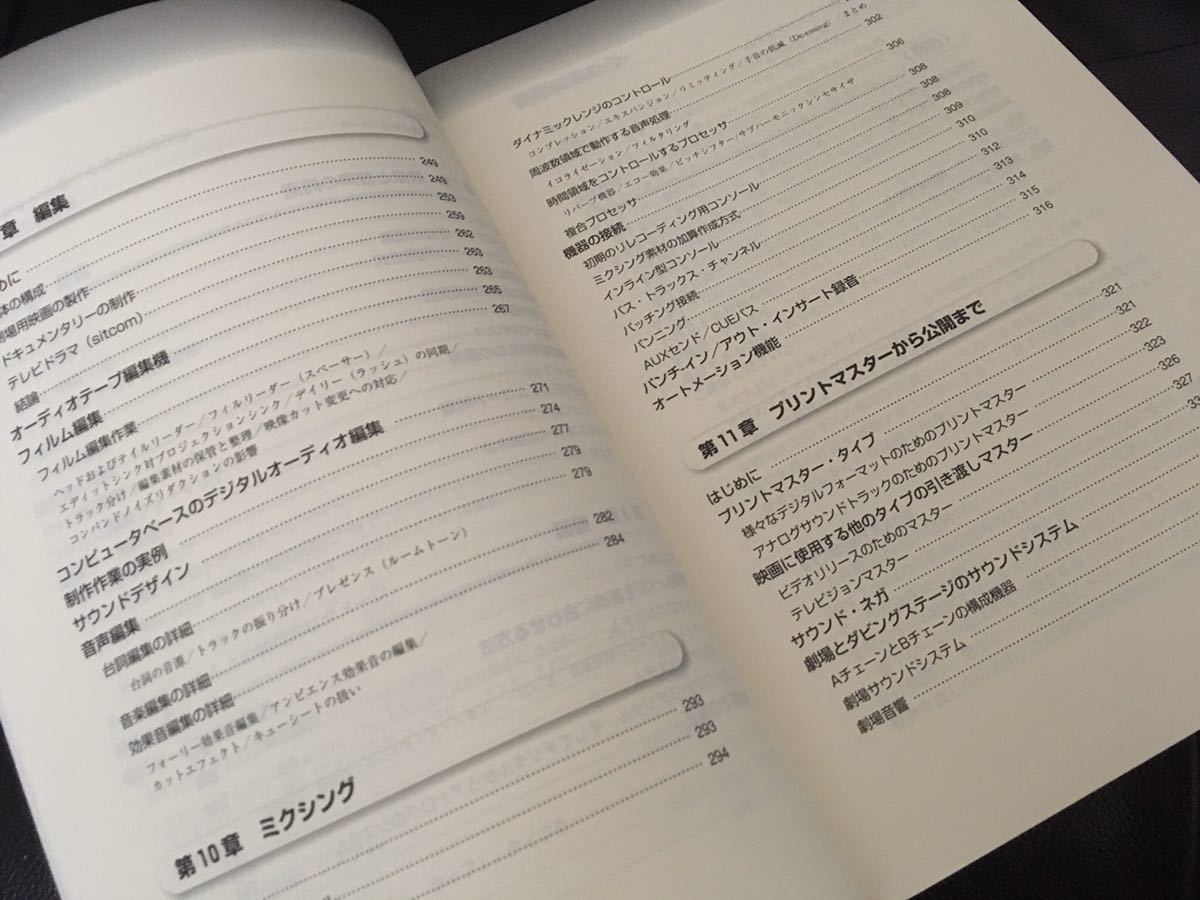 章 編集
めに 249
体の構成 249
劇場用映画の製作 253
ドキュメンタリーの制作 259
テレビドラマ（sitcom） 262
結論 263
オーディオテープ編集機 263
フィルム編集 265
フィルム編集作業 267
ヘッドおよびテイルリーダー／フィルリーダー（スペーサー）／
エディットシンク対プロジェクションシンク／デイリー（ラッシュ）の同期／
トラック分け／編集素材の保管と整理／映像カット変更への対応／
コンパンドノイズリダクションの影響
コンピュータベースのデジタルオーディオ編集 271
制作作業の実例 274
サウンドデザイン 277
音声編集 279
台詞編集の詳細 279
台詞の音源／トラックの振り分け／プレゼンス（ルームトーン）
音楽編集の詳細 282
効果音編集の詳細 284
フォーリー効果音編集／アンビエンス効果音の編集／
カットエフェクト／キューシートの扱い
第10章 ミクシング
293
293
294
ダイナミックレンジのコントロール 302
コンプレッション／エキスパンジョン／リミッティング／子音の低減（De-essing）／まとめ
周波数領域で動作する音声処理 306
イコライゼーション／フィルタリング
時間領域をコントロールするプロセッサ 308
リバーブ機器／エコー効果／ピッチシフター／サブハーモニックシンセサイザ
複合プロセッサ 308
機器の接続 308
初期のリレコーディング用コンソール 309
ミクシング素材の加算作成方式 310
インライン型コンソール 310
バス・トラックス・チャンネル 312
パッチング接続 313
パンニング 314
AUXセンド／CUEバス 315
パンチ-イン／アウト・インサート録音 316
オートメーション機能
第11章 プリントマスターから公開まで
はじめに 321
プリントマスター・タイプ 321
様々なデジタルフォーマットのためのプリントマスター 322
アナログサウンドトラックのためのプリントマスター 323
映画に使用する他のタイプの引き渡しマスター 326
ビデオリリースのためのマスター 327
テレビジョンマスター
サウンド・ネガ
劇場とダビングステージのサウンドシステム
AチェーンとBチェーンの構成機器
劇場サウンドシステム
劇場音響